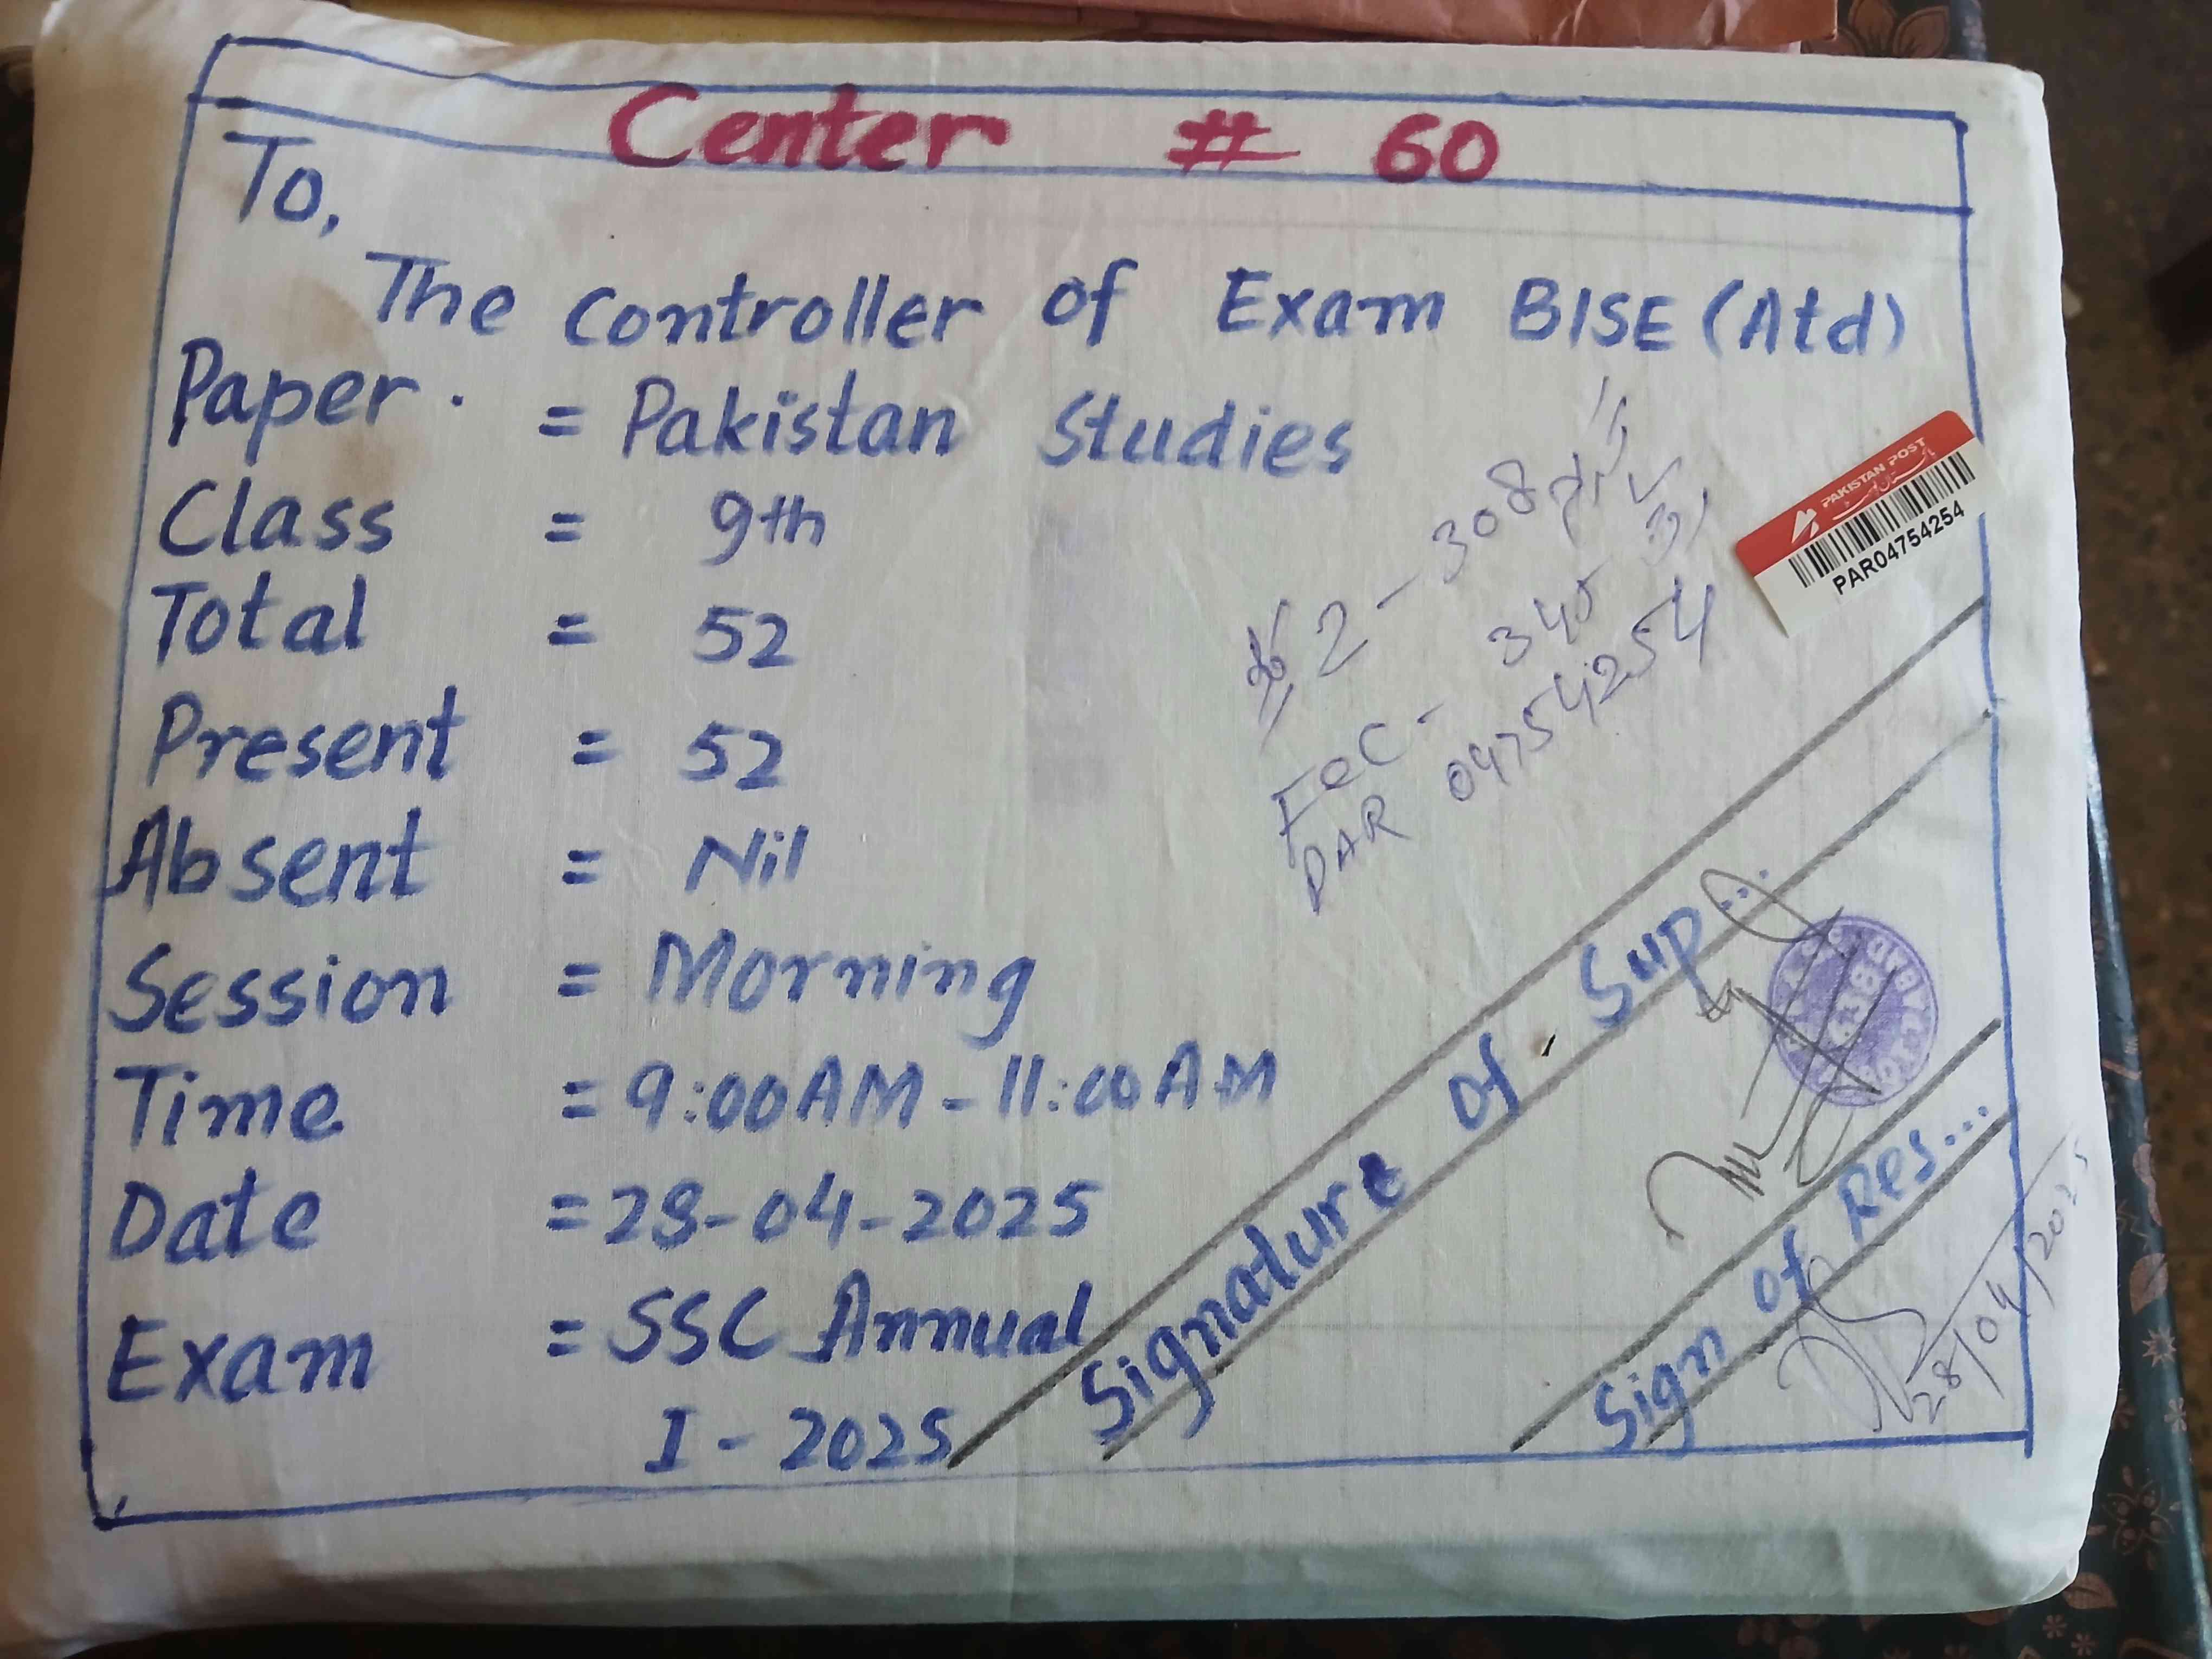 Center # 60
To,
The Controller of Exam BISE (Atd)
Paper = Pakistan Studies
Class = 9th
Total = 52
Present = 52
Absent = Nil
Session = Morning
Time = 9:00AM - 11:00AM
Date = 28-04-2025
Exam = SSC Annual
I - 2025
PAKISTAN POST
PAR04754254
2 - 308
345
PAR 04754254
Signature of Sup...
Sign of Res...
28/04/2025